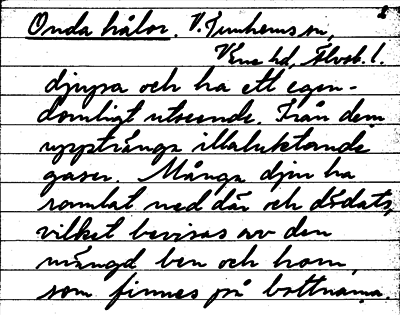 2
Onda hålor. V. Tunhems sn,
Väne hd, Älvsb. l.
djupa och ha ett egen-
domligt utseende. Från dem
uppträngа illaluktande
gaser. Många djur ha
ramlat ned där och dödats,
vilket bevisas av den
mängd ben och horn,
som finnes på bottnarna.